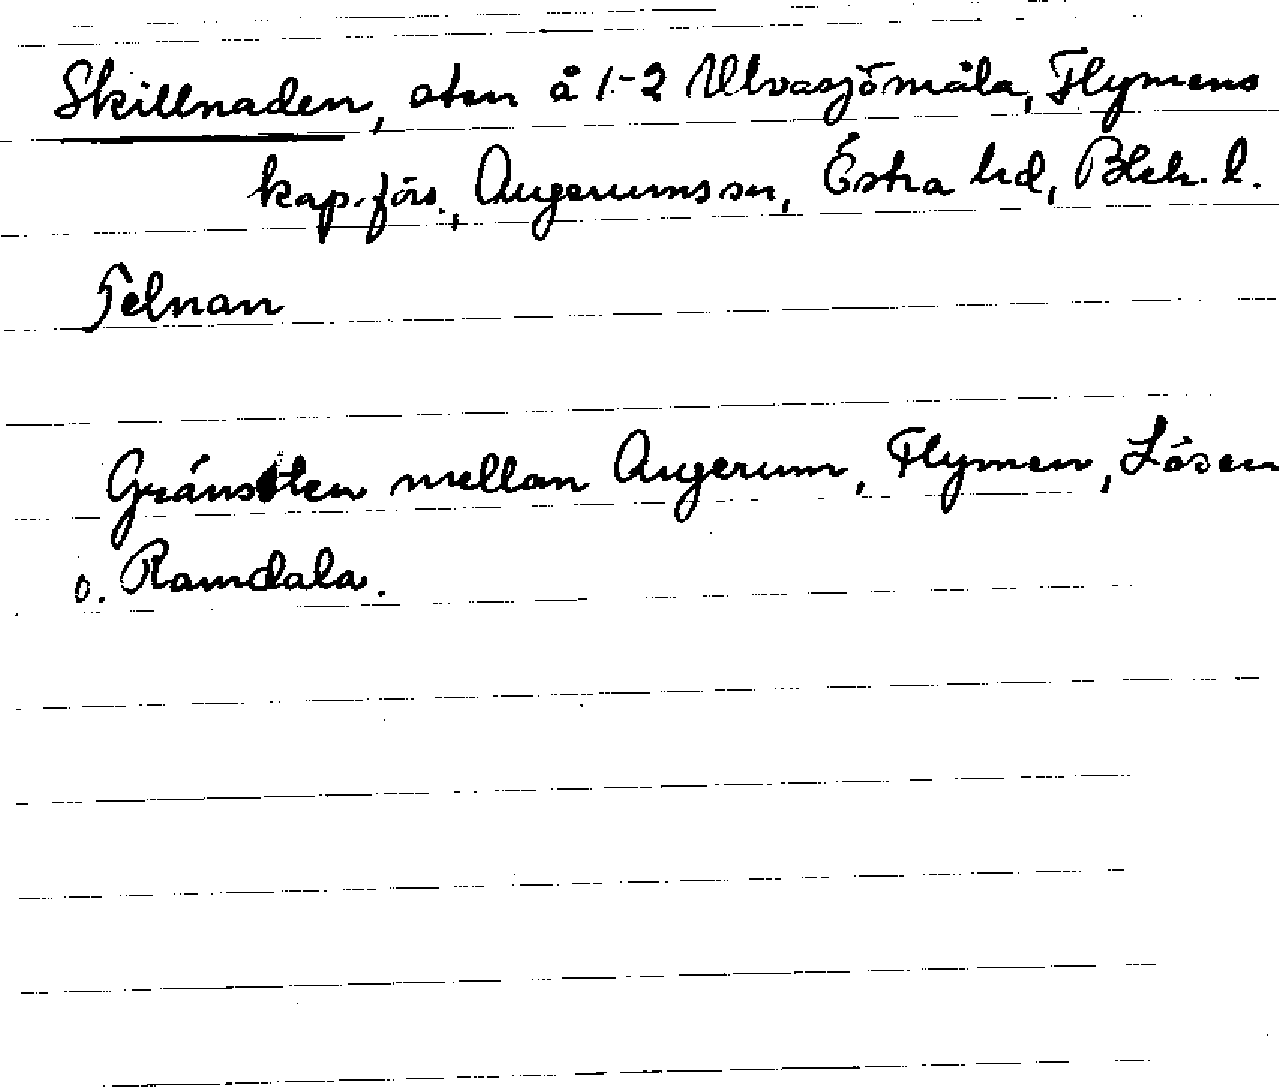 Skillnaden, sten å 1-2 Ulvasjömåla, Flymens
kap.förs., Augerums sn, Östra hd, Blek. l.
Gränssten mellan Augerum, Flymen, Lösen
o. Ramdala.